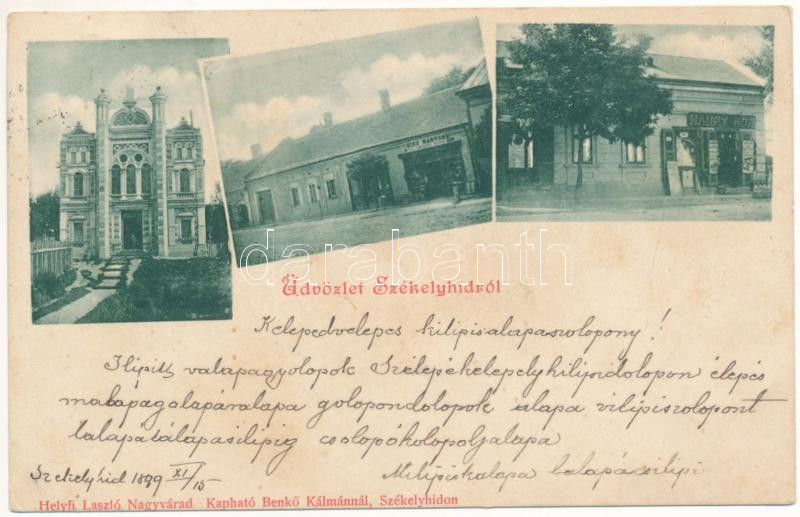 KISS MÁRTON
HAUPT MÓR
darabanth
Üdvözlet Székelyhidról
Kelepedvelepes kilipisalapaszolopony!
Ilipitt valapagyolopok Szélepékelepelyhilipidolopon élepés
malapagalapáralapa golopondolopok alapa vilipiszolopont
lalapátálapásilipig csolopókolopoljalapa
Székelyhid 1899 XI/15
Milipiskalapa balapácsilipi
Helyfi László Nagyvárad Kapható Benkő Kálmánnál, Székelyhidon